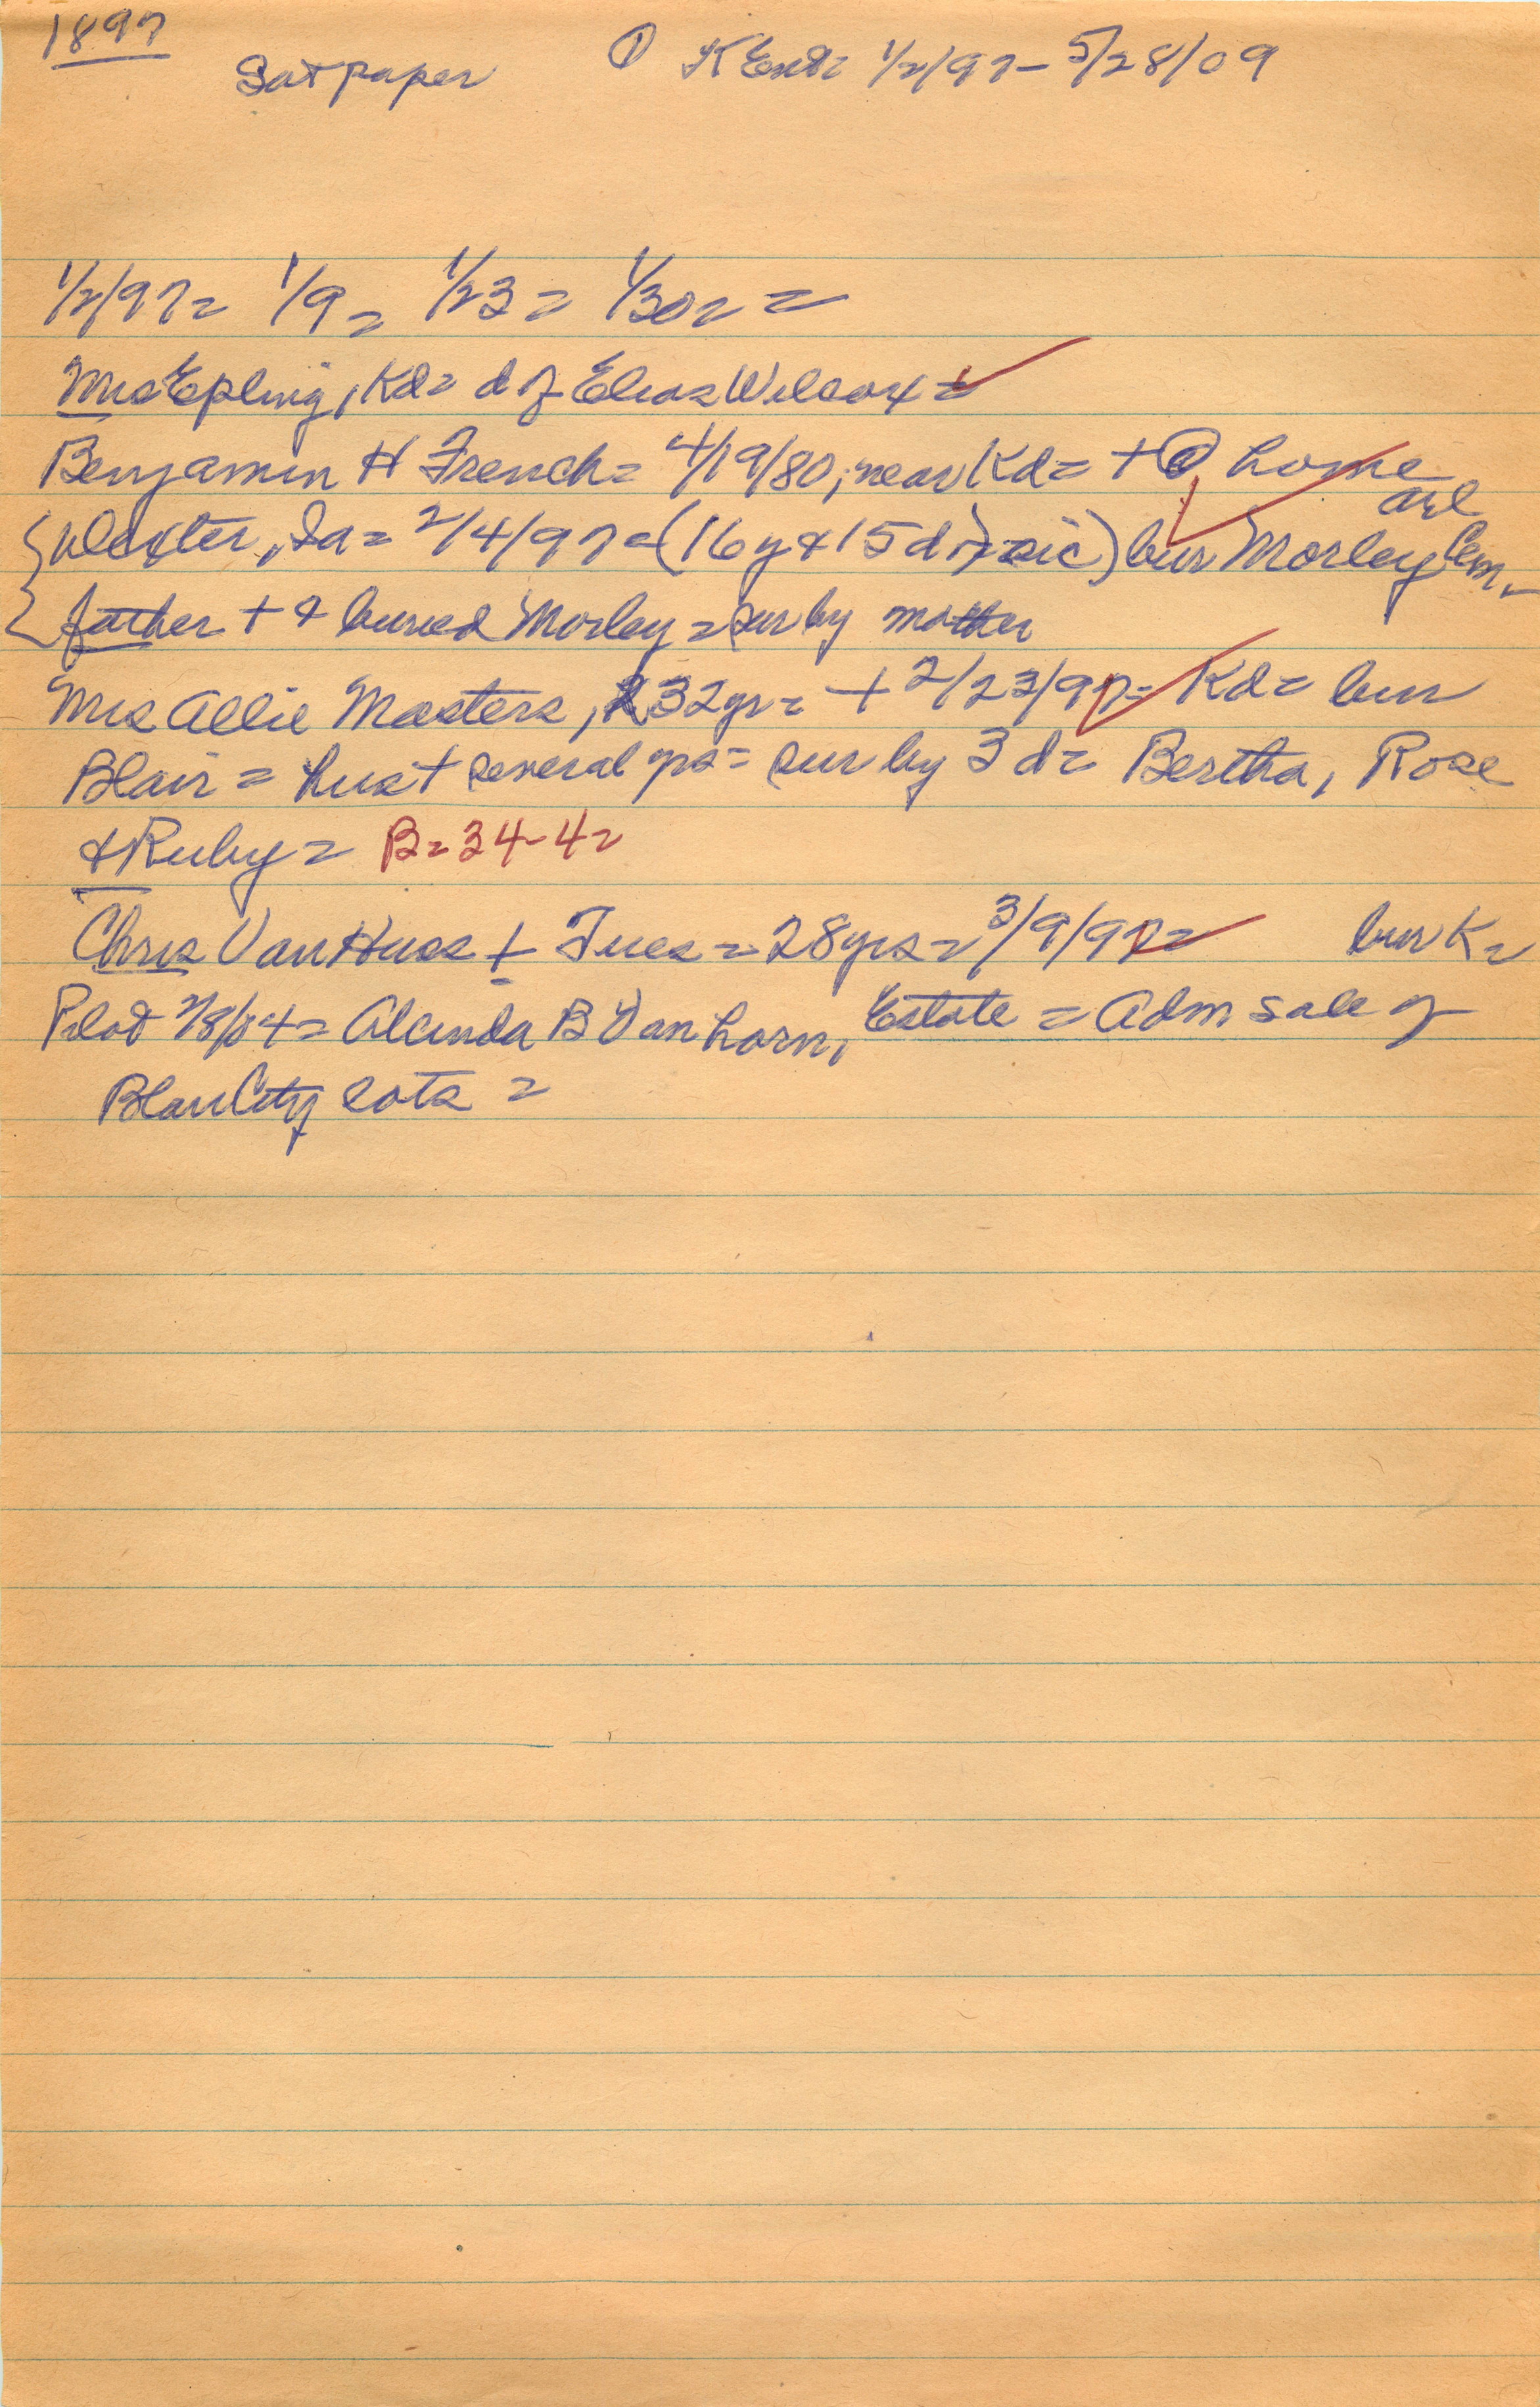 1897
Sat paper ① KEnt= 1/2/97 - 5/28/09
1/2/97= 1/9= 1/23= 1/30= =
Mrs Epling, Kd= d of Elias Wilcox=
Benjamin H French= 4/19/80, near Kd= + @ home
Dexter, Ia= 2/4/97=(16y & 15d)=sic) bur Morley Cem=
father + & buried Morley=sur by mother
Mrs Allie Masters, 32yr= + 2/23/97= Kd= bur
Blair= hus + several yrs= sur by 3 d= Bertha, Rose
& Ruby= B=34-4=
Chris VanHuss + Tues=28yrs=3/9/97= bur K=
Pilot 7/8/04= Alcinda B Vanhorn, Estate= Adm sale of
Blair City lots=